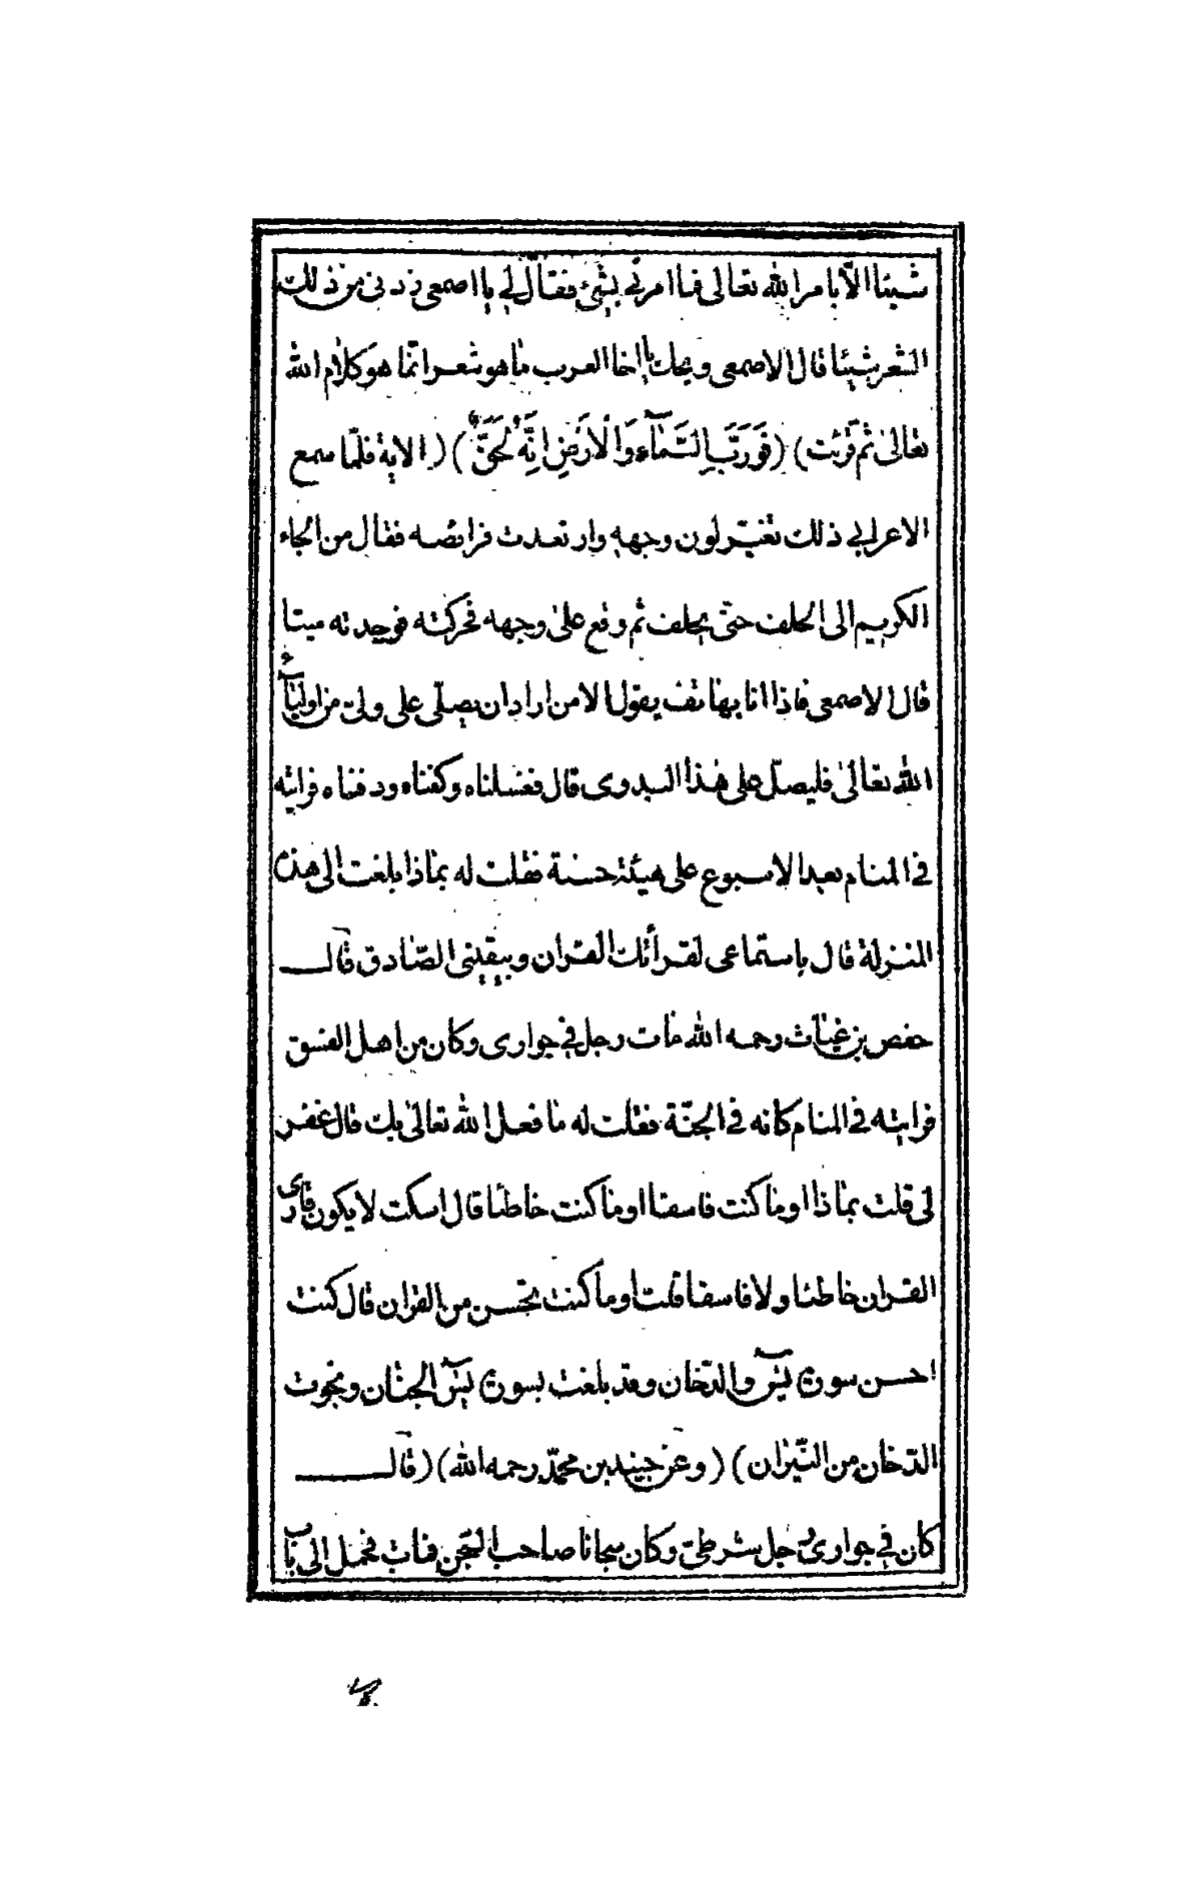 شيئا الّا بامر الله تعالى فما امرنى بشىء فقال لى يا اصمعى زدنى من ذلك
الشعر شيئا قال الاصمعى ويحك يا اخا العرب ما هو شعر انّما هو كلام الله
تعالى ثم قرئت) (فَوَرَبِّ السَّمَآءِ وَالْاَرْضِ اِنَّهُ لَحَقٌّ) (الاية فلمّا سمع
الاعرابى ذلك تغيّر لون وجهه وارتعدت فرائصه فقال من الجاء
الكريم الى الحلف حتى يحلف ثم وقع على وجهه فحركته فوجدته ميتا
قال الاصمعى فاذا انا بهاتف يقول الا من اراد ان يصلّى على ولىّ من اولياء
الله تعالى فليصلّ على هذا البدوى قال فغسلناه وكفناه ودفناه فرايته
فى المنام بعد الاسبوع على هيئة حسنة فقلت له بماذا بلغت الى هذه
المنزلة قال باستماعى لقرأتك القران وبيقينى الصّادق قال
حفص بن غياث رحمه الله مات رجل فى جوارى وكان من اهل الفسق
فرايته فى المنام كانه فى الجنّة فقلت له ما فعل الله تعالى بك قال غفر
لى قلت بماذا اوما كنت فاسقا اوما كنت خاطئا قال اسكت لا يكون قارى
القران خاطئا ولا فاسقا قلت اوما كنت تحسن من القران قال كنت
احسن سورة يٓسٓ والدّخان وقد بلغت بسورة يٓسٓ الجنان ونجوت
الدّخان من النّيران) (وعن جنيد بن محمّد رحمه الله) (قال
كان فى جوارى رجل شرطىّ وكان سجانا صاحب السّجن فمات فحمل الى باب